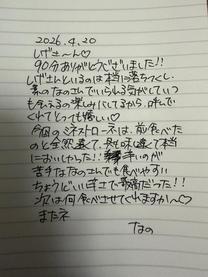 2026.4.20
しげさ〜ん♡
90分ありがとうございました!!
しげさんといるのは本当に落ちつくし、
素のなのでいられる気がしていつ
も会えるの楽しみにしてるから、呼んで
くれてとっても嬉しい♡
今回のミネストローネは、前食べた
のと全然違くて、別味で本当
においしかった!! 辛いのが
苦手ななのでも食べやすい
ちょうどいい辛さで最高だった!!
次は何食べさせてくれますか〜♡
またネ
なの